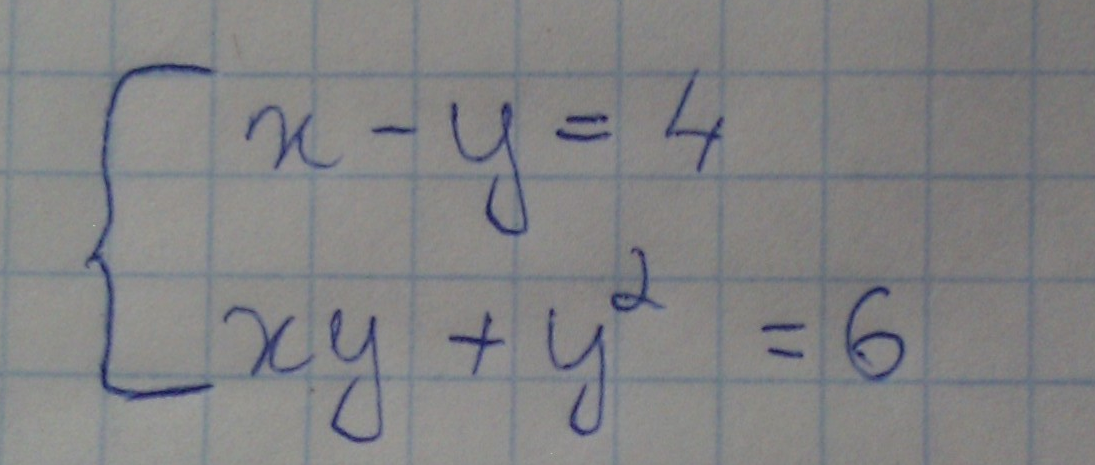 x - y = 4
xy + y² = 6